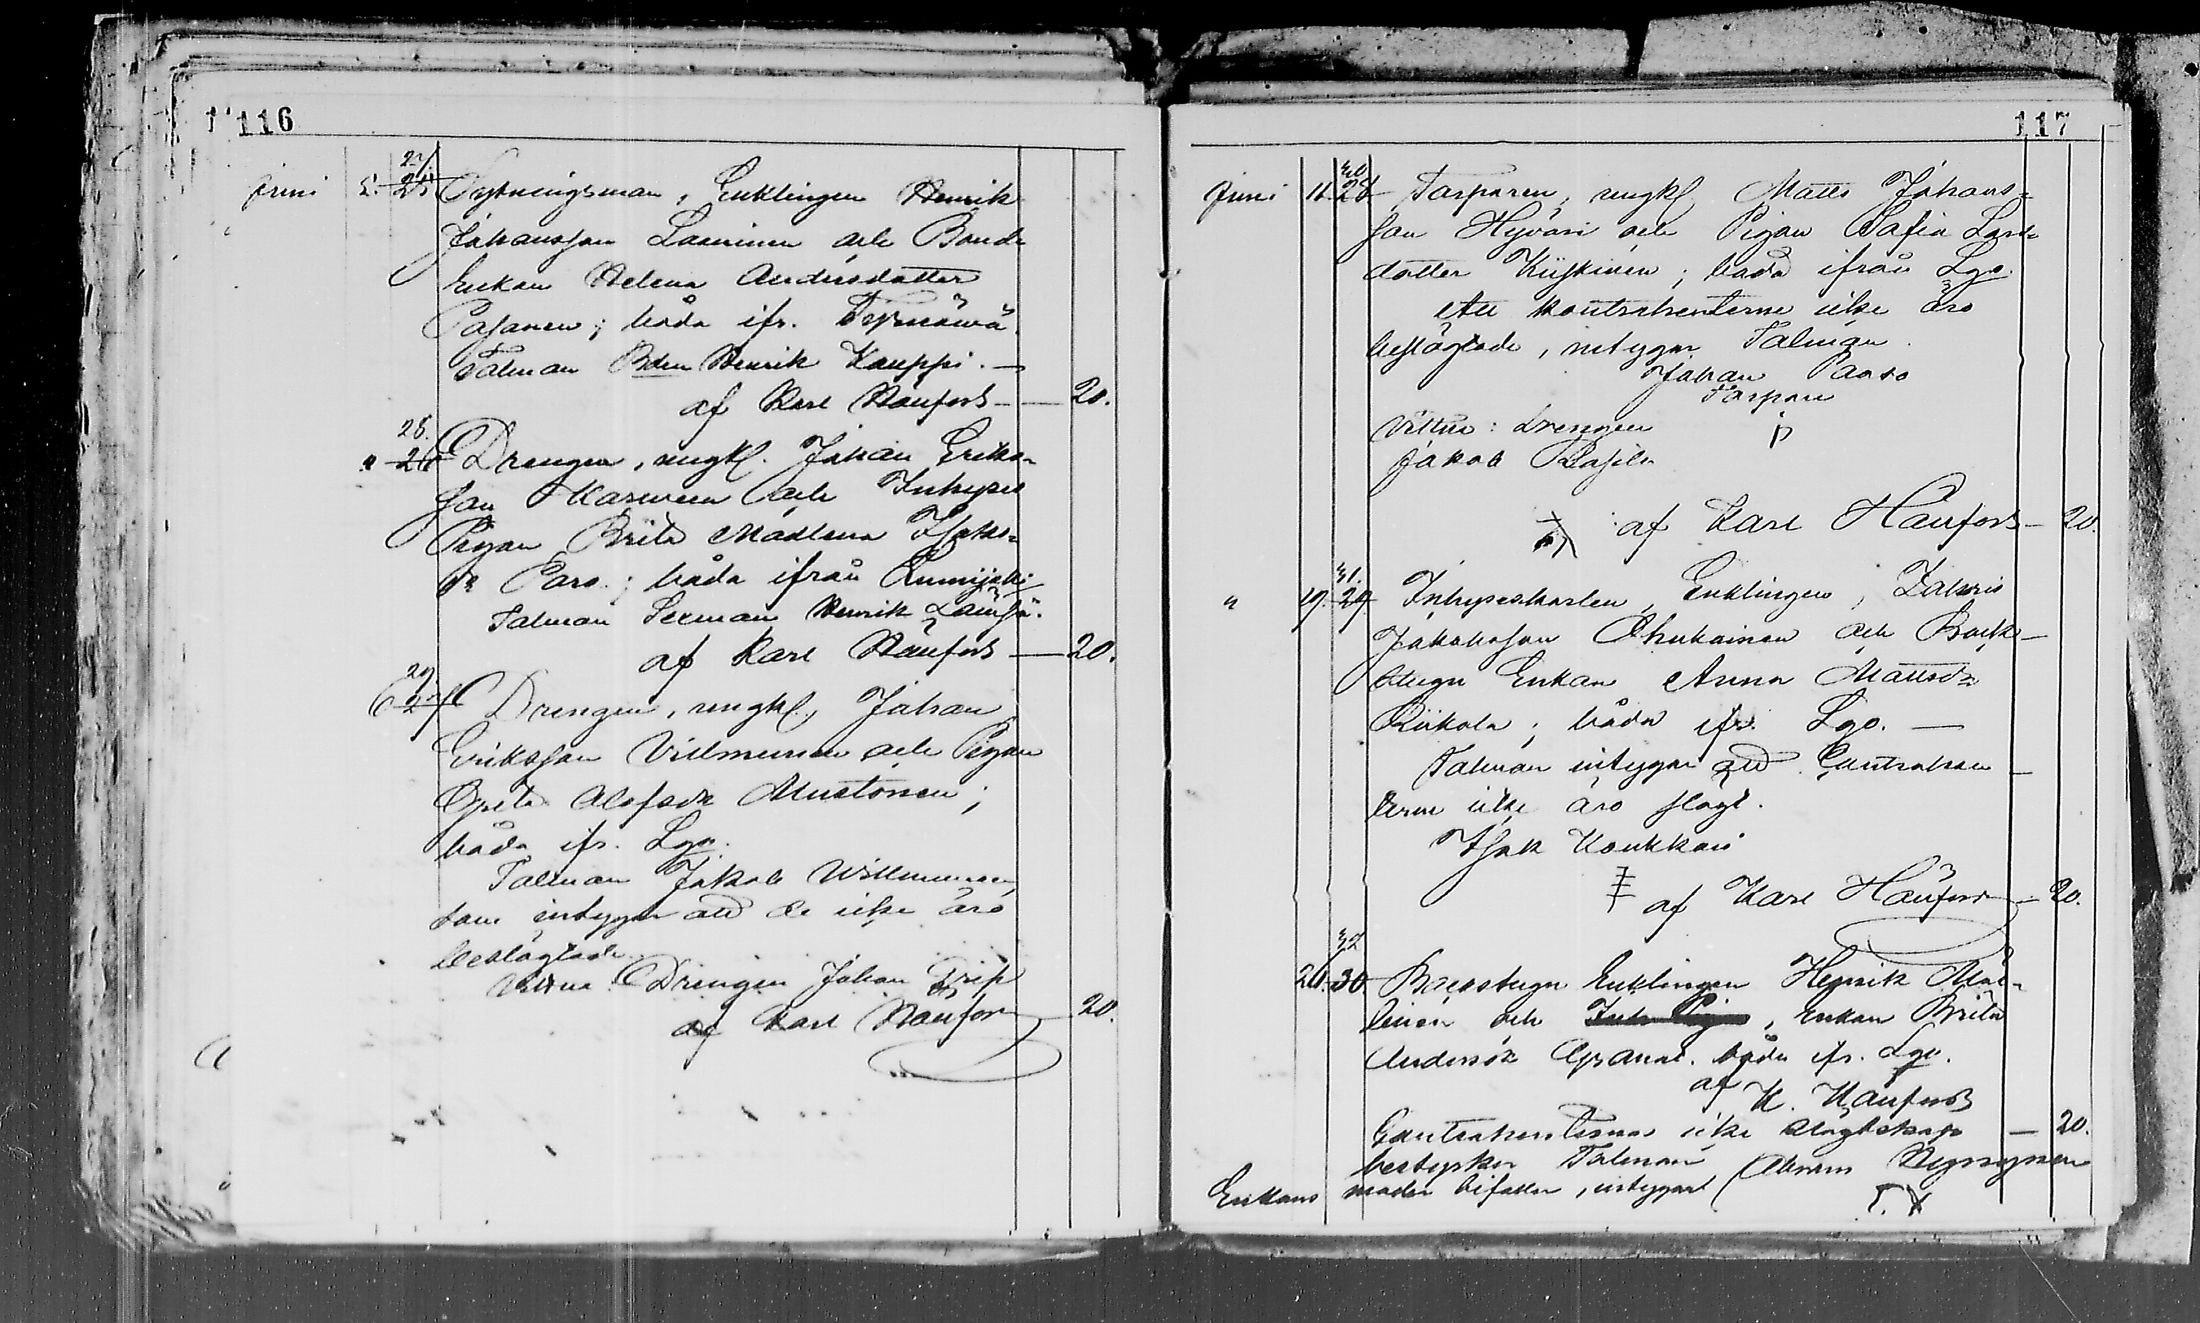 116
Juni 5. 27. 25 Sytningsman, Enklingen Henrik
Johansson Laurinen och Bonde
Enkan Helena Andersdotter
Pasanen; båda ifr. Tyrnäwä.
Talman Bden Henrik Kauppi. —
af Karl Hanfors — 20.
28.
" 26 Drengen, ungk. Johan Eriks-
son Karwinen och Inhyses
Pigan Brita Madlena Isaks-
dr Paro.; båda ifrån
Talman Henrik
af Karl Hanfors — 20.
29
6 27 Drengen, ungk., Johan
Eriksson Villmunen och Pigan
Greta Olofsdr Mustonen;
båda ifr. Lgo.
Talman Jakob Willmunen,
som intygar att de icke äro
beslägtade.
Vittne Drengen Johan
af Karl Hanfors 20.
117
Juni 11. 30 28 Torparen, ungk. Matts Johans-
son Hyväri och Pigan Sofia Lars-
dotter Kiiskinen; båda ifrån Lgo.
Att kontrahenterne icke äro
beslägtade, intygar Talman.
Johan Paaso
Torpare
Vittne: Drengen
Jakob
af Karl Hanfors — 20.
31.
" 19. 29 Inhyseskarlen, Enklingen, Zakris
Jakobsson Ohukainen och Back-
stugu Enkan Anna Mattsdr
Riikola; båda ifr. Lgo. —
Talman intygar att Contrahen —
terne icke äro slägt.
Isak Koukkari
af Karl Hanfors — 20.
32
20. 30. Backstugu Enklingen Henrik
och Enkan Brita
Andersdr Granat. båda ifr. Lgo.
af K. Hanfors
Contrahenternas icke slägtskap — 20.
bestyrker Talman Abram
Enkans moder bifaller, intygart